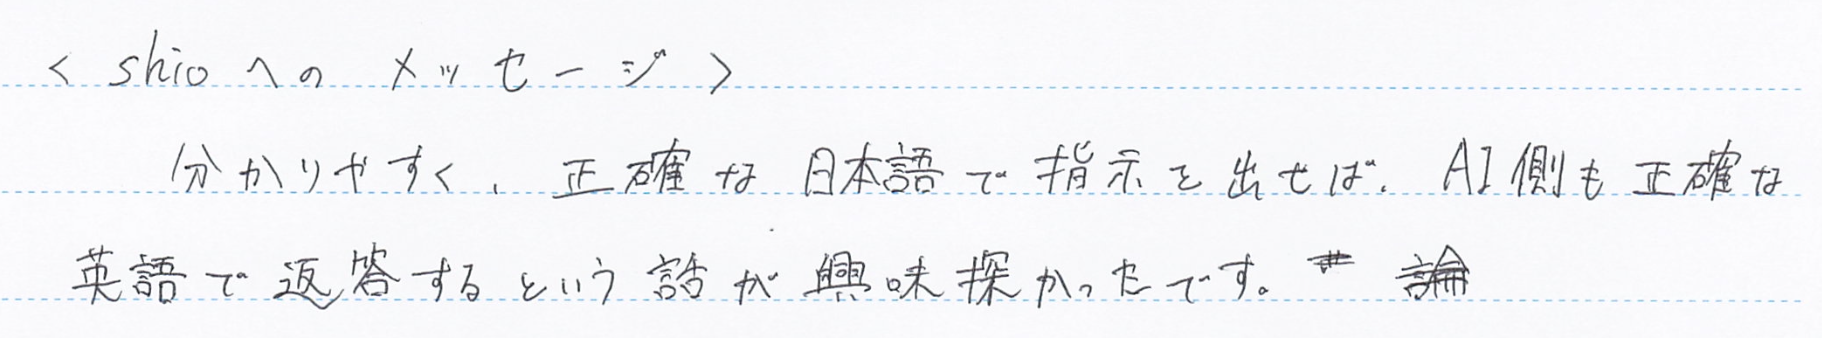 < shioへの メッセージ >
分かりやすく、正確な日本語で指示を出せば、AI側も正確な
英語で返答するという話が興味探かったです。